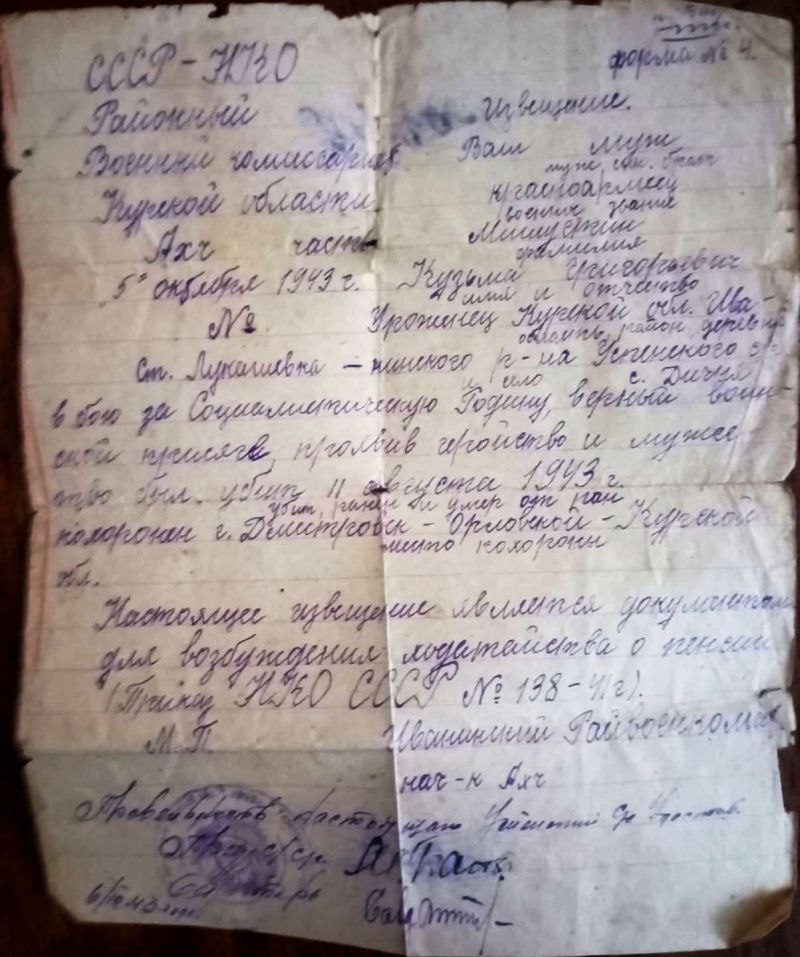 форма № 4.
СССР - НКО
Районный
Извещение.
Военный комиссариат
Ваш муж
муж, сын, брат
Курской области.
красноармеец
военное звание
Ахч часть
Мишустин
фамилия
5го октября 1943 г.
Кузьма Григорьевич
имя и отчество
№
Уроженец Курской обл. Ива-
область, район, деревня
Ст. Лукашевка - нинского р-на Успенского с/с
и село с. Дичня
в бою за Социалистическую Родину, верный воин-
ской присяге, проявив геройство и муже-
ство был. убит 11 августа 1943 г.
убит, ранен и умер от ран
похоронен г. Дмитровск - Орловской - Курской
место похорон
обл.
Настоящее извещение является документом
для возбуждения ходатайства о пенсии
(Приказ НКО СССР № 138-41г).
М.П. Иванинский Райвоенкомат
нач-к Ахч